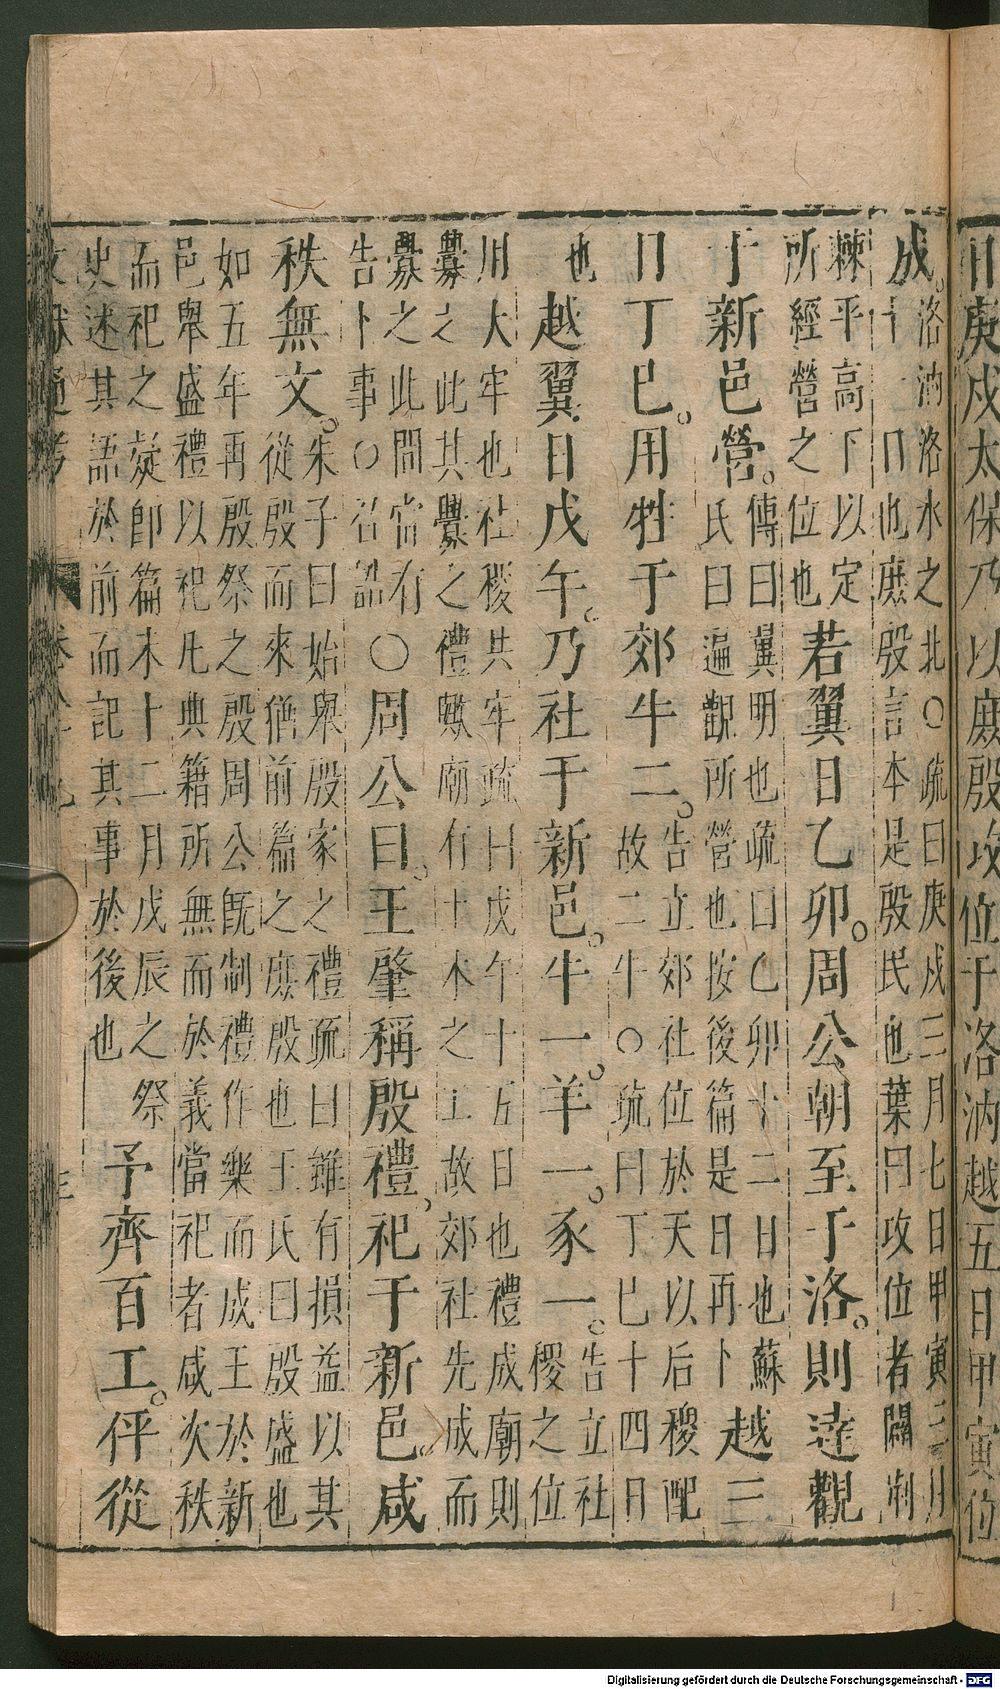 日庚戌太保乃以庶殷攻位于洛汭越五日甲寅位
成。洛汭洛水之北○疏曰庚戌三月七日甲寅三月
十一日也庶殷言本是殷民也葉曰攻位者闢荆
棘平高下以定
所經營之位也若翼日乙卯。周公朝至于洛。則達觀
于新邑營。傳曰翼明也疏曰乙卯十二日也蘇
氏曰遍觀所營也按後篇是日再卜越三
日丁巳。用牲于郊牛二。告立郊社位於天以后稷配
故二牛○疏曰丁巳十四日
也越翼日戊午。乃社于新邑。牛一。羊一。豕一。告立社
稷之位
用大牢也社稷共牢疏曰戊午十五日也禮成廟則
釁之此其釁之禮歟廟有土木之工故郊社先成而
釁之此間當有
告卜事○召誥○周公曰。王肇稱殷禮。祀于新邑。咸
秩無文。朱子曰始舉殷家之禮疏曰雖有損益以其
從殷而來猶前篇之庶殷也王氏曰殷盛也
如五年再殷祭之殷周公既制禮作樂而成王於新
邑舉盛禮以祀凡典籍所無而於義當祀者咸次秩
而祀之疑即篇末十二月戊辰之祭
史述其語於前而記其事於後也予齊百工。伻從
文獻通考
Digitalisierung gefördert durch die Deutsche Forschungsgemeinschaft - DFG